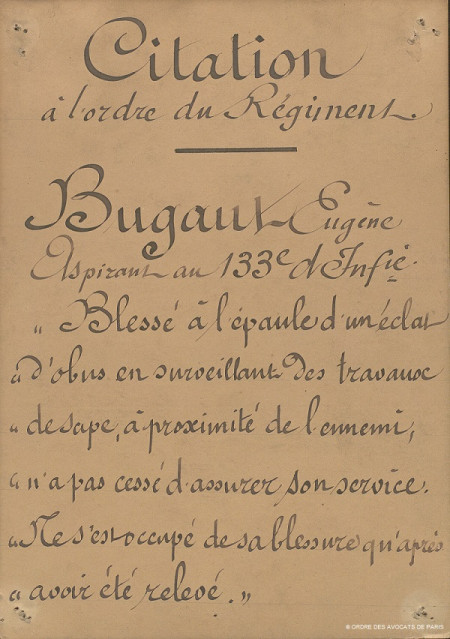 Citation
à l'ordre du Régiment.
Bugaut Eugène
Aspirant au 133e d'Infie.
" Blessé à l'épaule d'un éclat
" d'obus en surveillant des travaux
" de sape, à proximité de l'ennemi,
" n'a pas cessé d'assurer son service.
" Ne s'est occupé de sa blessure qu'après
" avoir été relevé. "
© ORDRE DES AVOCATS DE PARIS